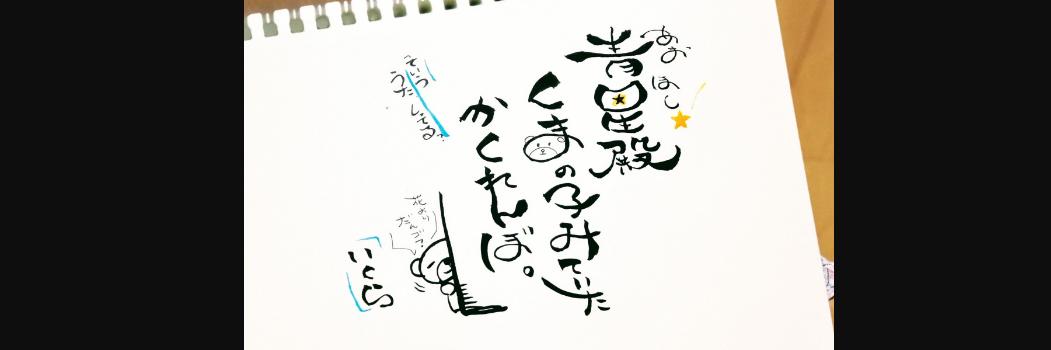 あおほし
青星殿
くまの子みていた
かくれんぼ。
ていう
うた
してる?
花より
だんゴ?
いくら